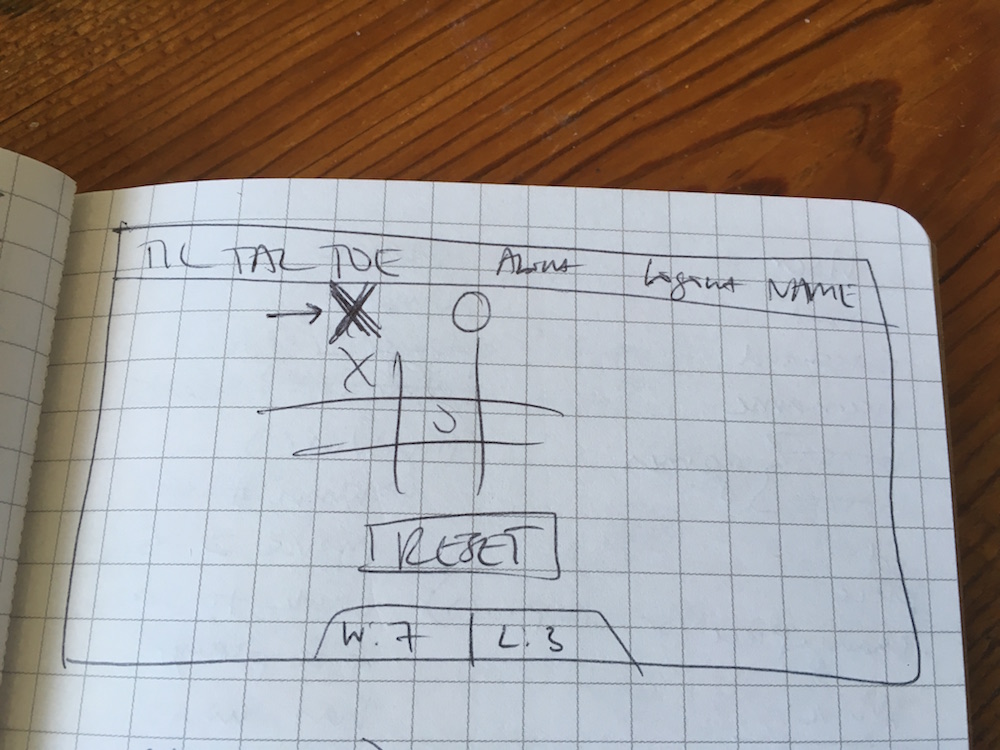 TIC TAC TOE About Logout NAME
→ X O
X
O
RESET
W: 7 L: 3